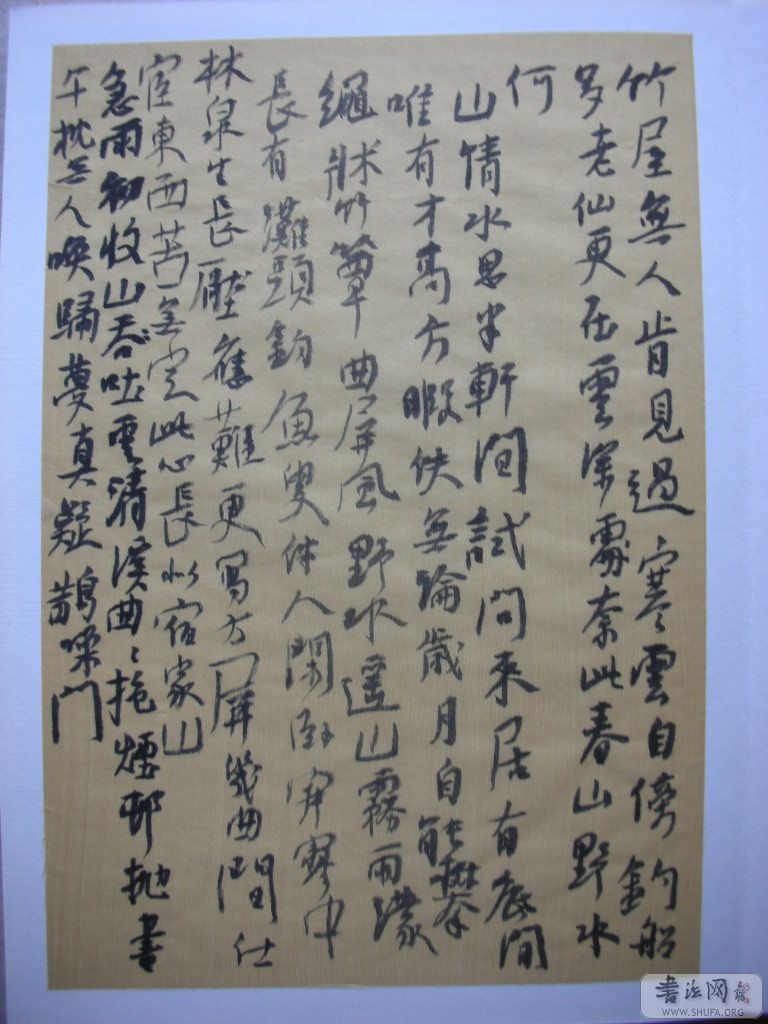 竹屋無人肯見過寒雲自傍釣船
多老仙更在雲深處奈此春山野水
何
山情水思半軒間試問來居有底閒
唯有才高方暇佚無論歲月自能攀
繩牀竹簟曲屏風野水遥山霧雨濛
長有灘頭釣魚叟伴人閒臥寂寥中
林泉生長壓舊難更寫方屏幾曲間仕
宦東西苦無定此心長似宿家山
急雨初收山吞吐雲清溪曲〻抱煙邨抛書
午枕無人喚歸夢真疑鵲噪門
書法网
WWW.SHUFA.ORG